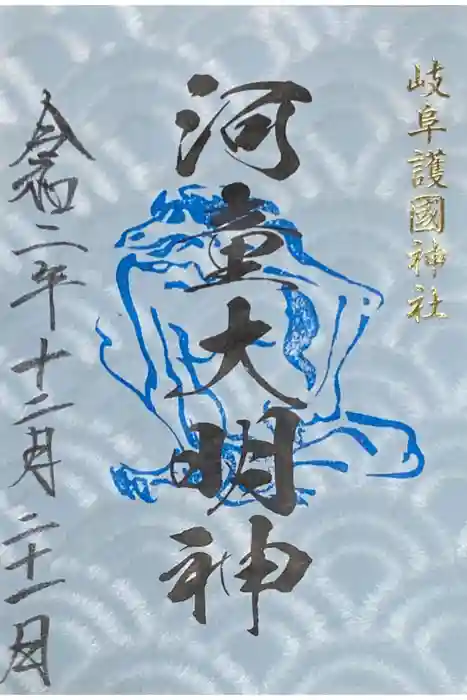 岐阜護國神社
河童大明神
令和二年十二月二十一日